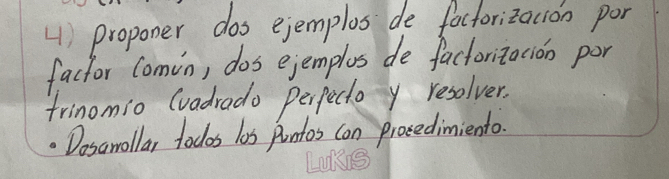 4) proponer dos ejemplos de factorización por
factor común, dos ejemplos de factorización por
trinomio cuadrado perfecto y resolver.
• Desarrollar todos los puntos con procedimiento.
LUKIS